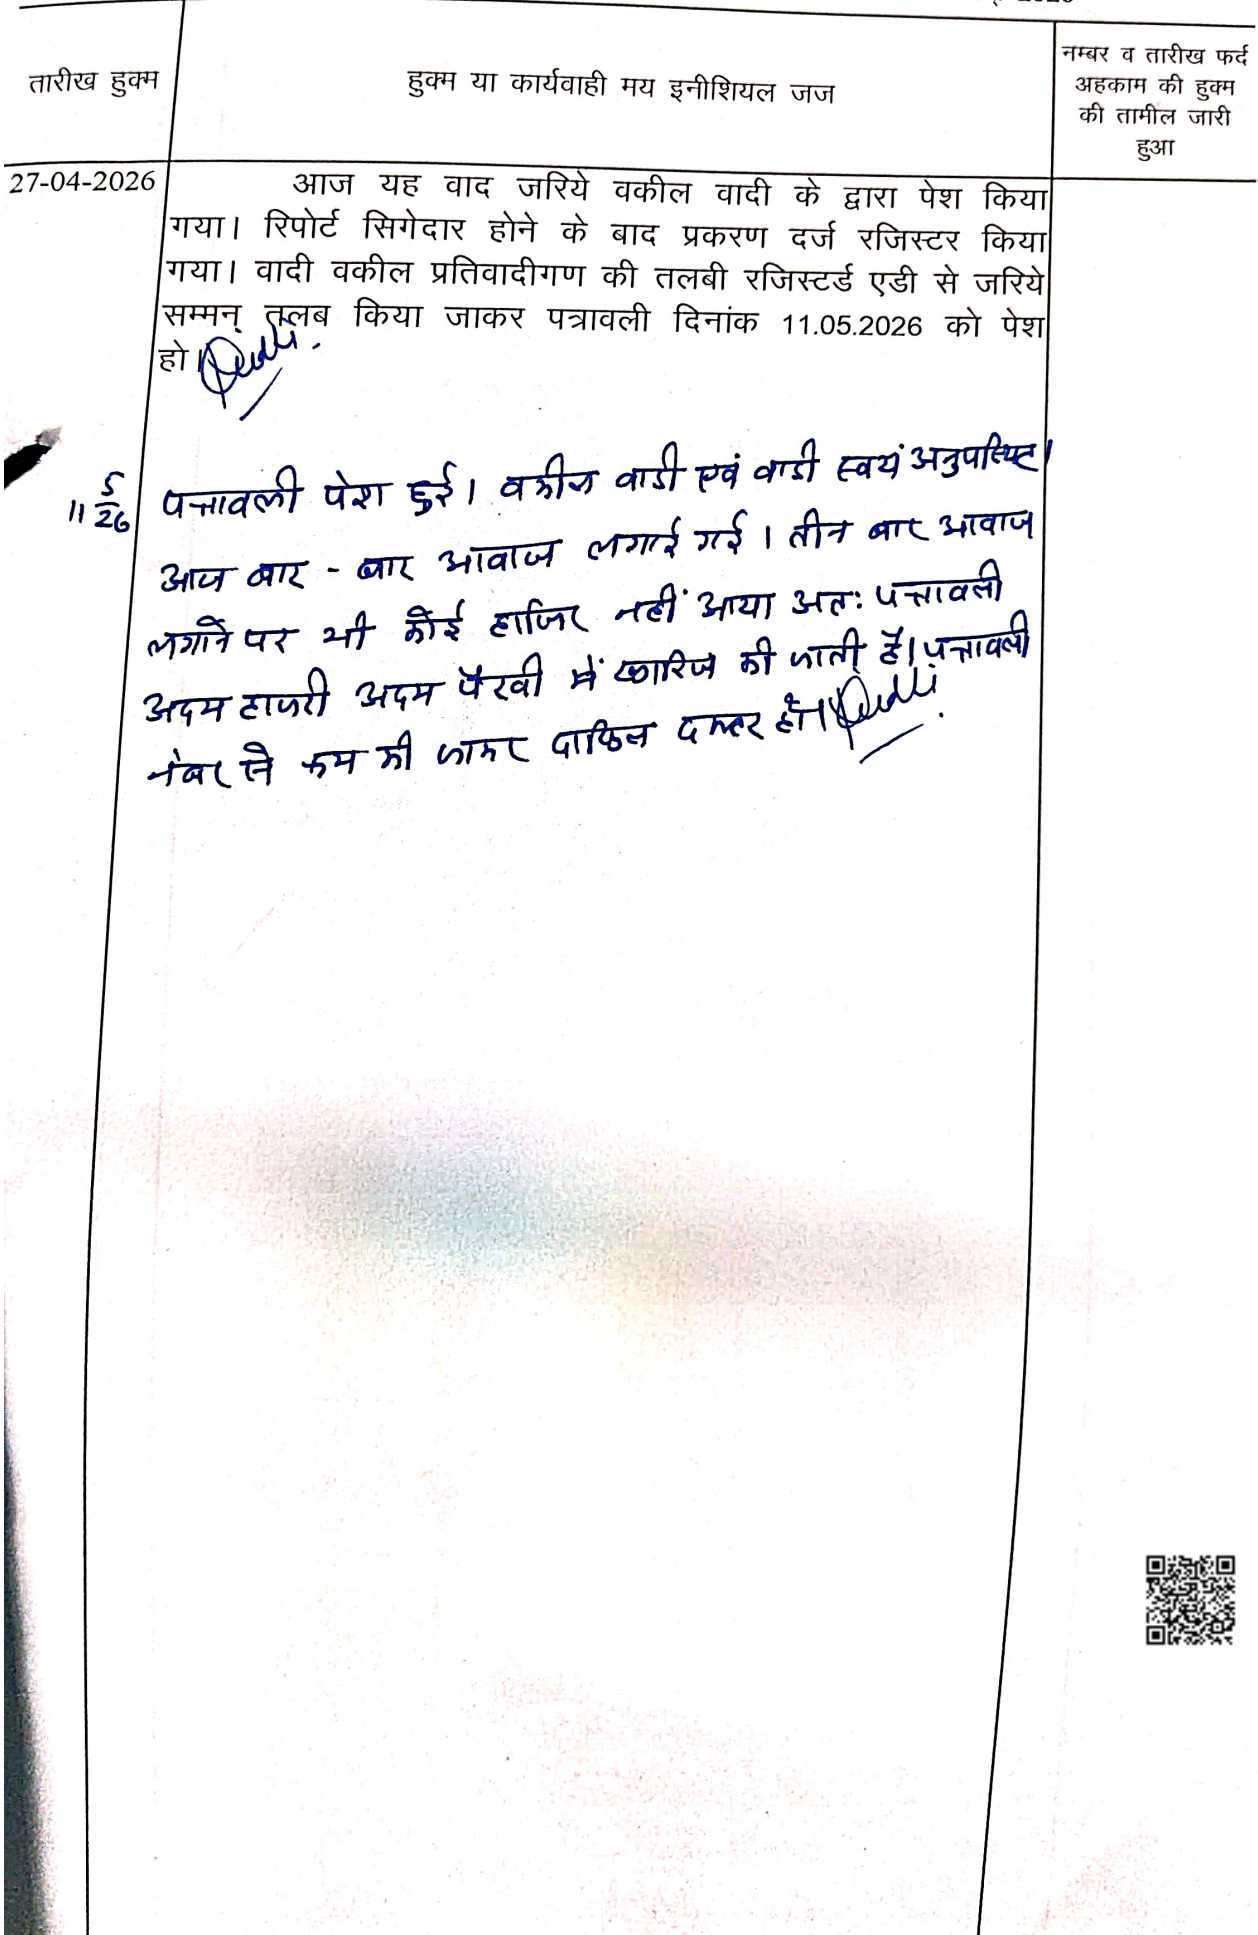 तारीख हुक्म
हुक्म या कार्यवाही मय इनीशियल जज
नम्बर व तारीख फर्द
अहकाम की हुक्म
की तामील जारी
हुआ
27-04-2026
आज यह वाद जरिये वकील वादी के द्वारा पेश किया
गया। रिपोर्ट सिगेदार होने के बाद प्रकरण दर्ज रजिस्टर किया
गया। वादी वकील प्रतिवादीगण की तलबी रजिस्टर्ड एडी से जरिये
सम्मन् तलब किया जाकर पत्रावली दिनांक 11.05.2026 को पेश
हो।
11 5/26
पत्रावली पेश हुई। वकील वादी एवं वादी स्वयं अनुपस्थित।
आज बार - बार आवाज लगाई गई। तीन बार आवाज
लगाने पर भी कोई हाजिर नहीं आया अतः पत्रावली
अदम हाजरी अदम पैरवी में खारिज की जाती है। पत्रावली
नंबर से कम की जाकर दाखिल दफ्तर हो।